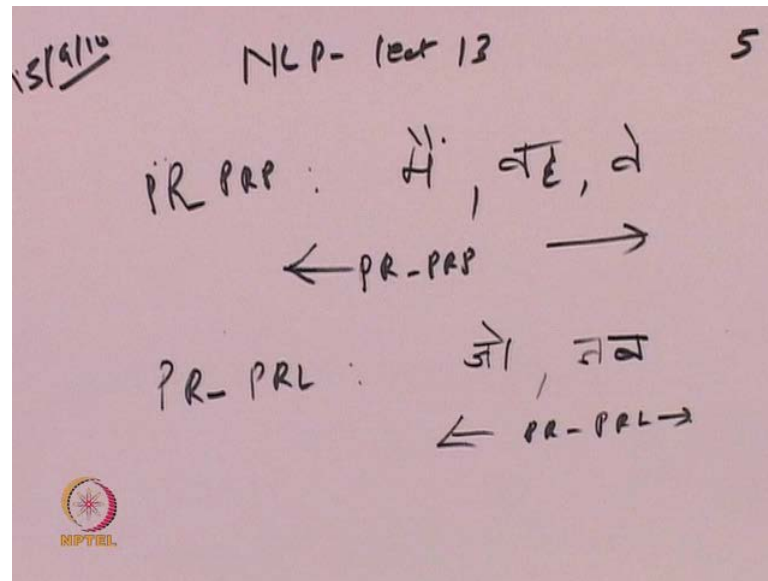 15/9/10 NLP- lect 13 5
PR PRP : मैं, वह, वे
← PR-PRP →
PR- PRL : जो, जब
← PR-PRL →
NPTEL